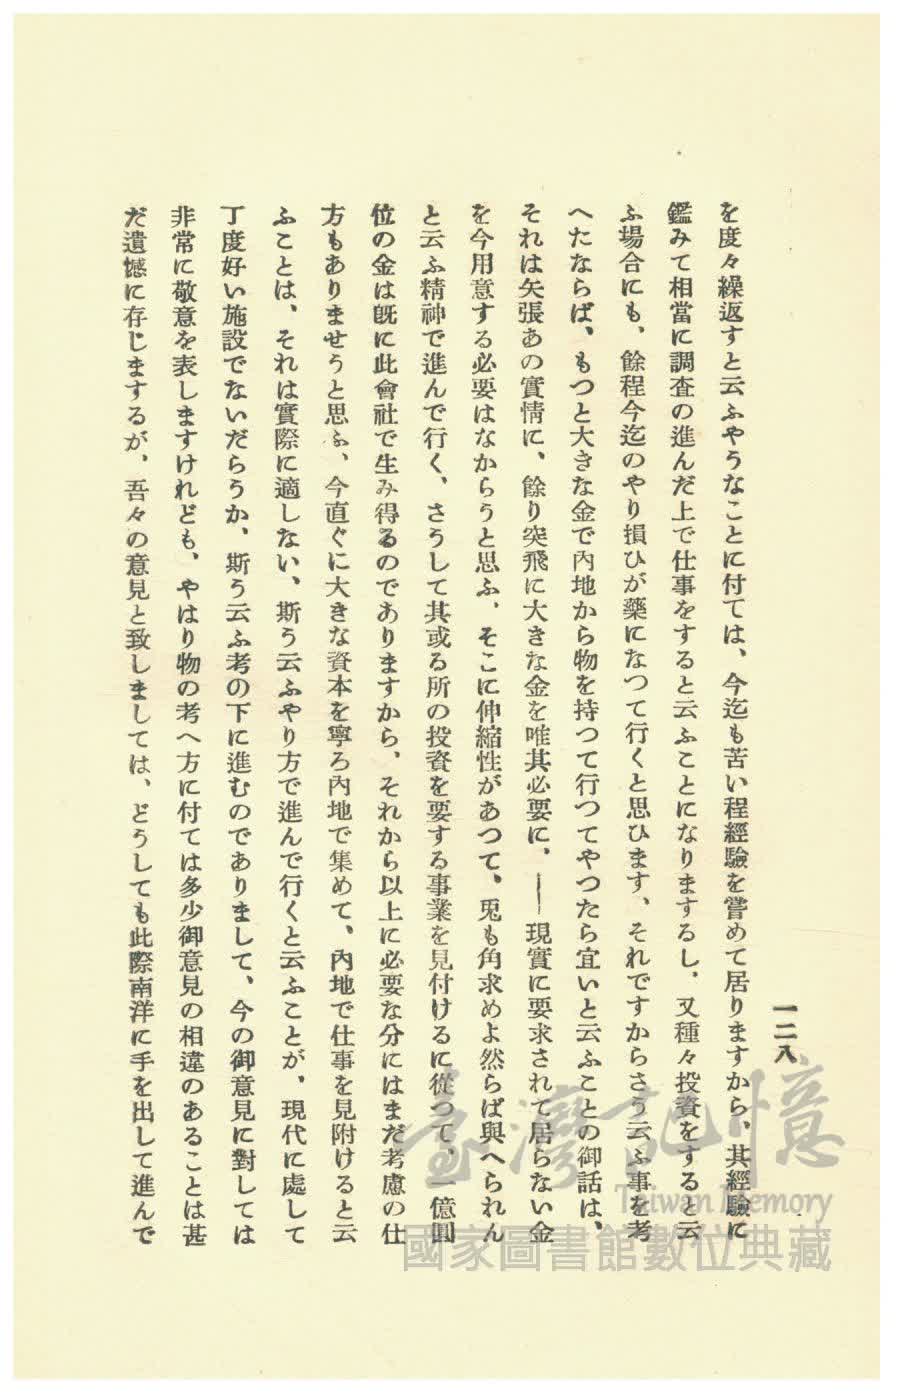 一二八
を度々繰返すと云ふやうなことに付ては、今迄も苦い程經驗を嘗めて居りますから、其經驗に
鑑みて相當に調査の進んだ上で仕事をすると云ふことになりまするし、又種々投資をすると云
ふ場合にも、餘程今迄のやり損ひが藥になつて行くと思ひます、それですからさう云ふ事を考
へたならば、もつと大きな金で內地から物を持つて行つてやつたら宜いと云ふことの御話は、
それは矢張あの實情に、餘り突飛に大きな金を唯其必要に、――現實に要求されて居らない金
を今用意する必要はなからうと思ふ、そこに伸縮性があつて、兎も角求めよ然らば與へられん
と云ふ精神で進んで行く、さうして其或る所の投資を要する事業を見付けるに從つて、一億圓
位の金は既に此會社で生み得るのでありますから、それから以上に必要な分にはまだ考慮の仕
方もありませうと思ふ、今直ぐに大きな資本を寧ろ內地で集めて、內地で仕事を見附けると云
ふことは、それは實際に適しない、斯う云ふやり方で進んで行くと云ふことが、現代に處して
丁度好い施設でないだらうか、斯う云ふ考の下に進むのでありまして、今の御意見に對しては
非常に敬意を表しますけれども、やはり物の考へ方に付ては多少御意見の相違のあることは甚
だ遺憾に存じまするが、吾々の意見と致しましては、どうしても此際南洋に手を出して進んで
臺灣記憶
Taiwan Memory
國家圖書館數位典藏